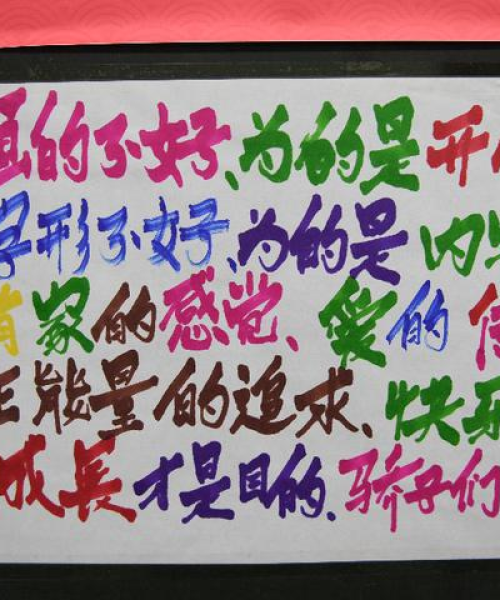 的不好、为的是开
字形不好、为的是内
有家的感觉、爱的
正能量的追求、快乐
成長才是目的、骄子们